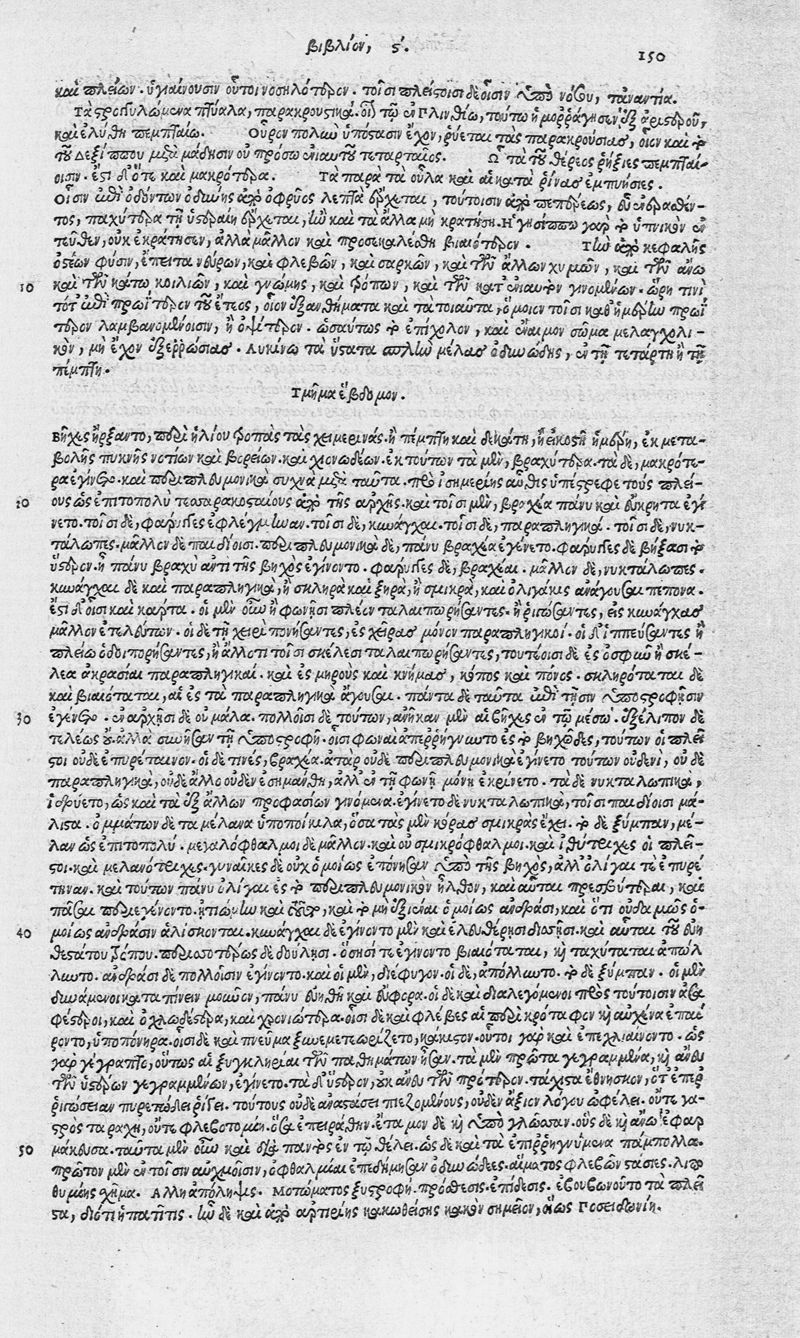 βιβλίον, ϛ.
150
καὶ πλείων. ὑγιαίνουσιν οὗτοι νοσηλότερον. τοῖσι πλείστοισι δὲ οἷσιν ὑπὸ νόσου, τἀναντία.
Τὰ στρογγυλόμενα πτύαλα, παρακρουστικά. οἷον τῷ ἐν Πλινθίῳ, τούτῳ ᾑμορράγησεν ἐξ ἀριστεροῦ,
καὶ ἐλύθη πεμπταίῳ. Οὖρον πολλὴν ὑπόστασιν ἔχον, ῥύεται τὰς παρακρούσιας, οἷον καὶ τὸ
τοῦ Δεξίππου μετὰ μάδησιν οὐ πρόσω ἐνιαυτοῦ τεταρταῖος. Ὦτα τοῦ θέρεος ῥήξιες πεμπταί-
οισιν. ἔστι δ' ὅτε καὶ μακρότερα. Τὰ παρὰ τὰ οὖλα καὶ αἱ κατὰ ῥῖνας ἐμπυήσιες.
Οἷσιν ἐπὶ ὀδόντων ὀδύνης ἀπὸ ὀφρύος λεπτὰ ἔρχεται, τούτοισιν ἀπὸ πεπέρεως, ἐν ἕδρα θέν-
τος, παχύτερα τῇ ὑστεραίῃ ἔρχεται, ἢν καὶ τὰ ἄλλα μὴ κρατήσῃ. Ἡγησίππῳ γὰρ τὸ ὑπνικὸν ἐν-
τεῦθεν, οὐκ ἐκράτησεν, ἀλλὰ μᾶλλον καὶ προσεκαλέσθη βιαιότερον. Τὴν ἀπὸ κεφαλῆς
ὀστέων φύσιν, ἔπειτα νεύρων, καὶ φλεβῶν, καὶ σαρκῶν, καὶ τῶν ἄλλων χυμῶν, καὶ τῶν ἄνω
10 καὶ τῶν κάτω κοιλιῶν, καὶ γνώμης, καὶ τρόπων, καὶ τῶν κατ' ἐνιαυτὸν γινομένων. ὥρῃ τινὶ
τότ' ἐπὶ πρωΐτερον τοῦ ἔτεος, οἷον ἐξανθήματα καὶ τὰ τοιαῦτα, ὅμοιον τοῖσι καθ' ἡμέρην πρωΐ-
τερον λαμβανομένοισιν, ἢ ὀψίτερον. ὡσαύτως τὸ ἐπίχολον, καὶ ἔναιμον σῶμα μελαγχολι-
κὸν, μὴ ἔχον ἐξερρώσιας. Λυκίνῳ τὰ ὕστατα σπλὴν μέλας ὀδυνώδης, ἐν τῇ τετάρτῃ ἢ τῇ
πέμπτῃ.
Τμῆμα ἕβδομον.
Βῆχες ἤρξαντο, περὶ ἡλίου τροπὰς τὰς χειμερινάς. ἢ πέμπτῃ καὶ δεκάτῃ, ἢ εἰκοστῇ ἡμέρῃ, ἐκ μετα-
βολῆς πυκνῆς νοτίων καὶ βορείων. καὶ χιονωδέων. ἐκ τούτων τὰ μὲν, βραχύτερα. τὰ δὲ, μακρότε-
ρα ἐγίνετο. καὶ περιπλευμονικὰ συχνὰ μετὰ ταῦτα. πρὸ ἰσημερίης αὖθις ὑπέστρεφε τοὺς πλεί-
20 ους ὡς ἐπιτοπολὺ τεσσαρακοσταίους ἀπὸ τῆς ἀρχῆς. καὶ τοῖσι μὲν, βραχέα πάνυ καὶ εὔκρητα ἐγέ
νετο. τοῖσι δὲ, φάρυγγες ἐφλέγμηναν. τοῖσι δὲ, κυνάγχαι. τοῖσι δὲ, παραπληγικά. τοῖσι δὲ, νυκ-
τάλωπες. μᾶλλον δὲ παιδίοισι. περιπλευμονικὰ δὲ, πάνυ βραχέα ἐγένετο. φάρυγγες δὲ βήξασι τὸ
ὕστερον. ἢ πάνυ βραχὺ ἀντὶ τῆς βηχὸς ἐγίνοντο. φάρυγγες δὲ, βραχέαι. μᾶλλον δὲ, νυκτάλωπες.
κυνάγχαι δὲ καὶ παραπληγικὰ, ἢ σκληρὰ καὶ ξηρὰ, ἢ σμικρὰ, καὶ ὀλιγάκις ἀνάγουσαι πέπονα.
ἔστι δ' οἷσι καὶ κάρτα. οἱ μὲν οὖν ἢ φωνῇσι πλέιω ταλαιπωρήσαντες. ἢ ῥιγώσαντες, εἰς κυνάγχας
μᾶλλον ἐτελεύτων. οἱ δὲ τῇ χειρὶ πονήσαντες, ἐς χεῖρας μόνον παραπληγικοί. οἱ δ' ἱππεύσαντες ἢ
πλείω ὁδοιπορήσαντες, ἢ ἄλλο τι τοῖσι σκέλεσι ταλαιπωρήσαντες, τουτέοισι δὲ ἐς ὀσφῦν ἢ σκέ-
λεα ἀκρασίαι παραπληγικαί. καὶ ἐς μηροὺς καὶ κνήμας, κόπος καὶ πόνος. σκληρόταται δὲ
καὶ βιαιόταται, αἱ ἐς τὰ παραπληγικὰ ἄγουσαι. πάντα δὲ ταῦτα ἐπὶ τῇσιν ὑποστροφῇσιν
30 ἐγένετο. ἐν ἀρχῇσι δὲ οὐ μάλα. πολλοῖσι δὲ τούτων, ἀνῆκαν μὲν αἱ βῆχες ἐν τῷ μέσῳ. ἐξέλιπον δὲ
τελέως οὔ. ἀλλὰ συνῆσαν τῇ ὑποστροφῇ. οἷσι φωναὶ ἀπερρήγνυντο ἐς τὸ βηχῶδες, τούτων οἱ πλεῖ
στοι οὐδὲ ἐπυρέταινον. οἱ δέ τινες, βραχέα. ἀτὰρ οὐδὲ περιπλευμονικὰ ἐγίνετο τούτων οὐδενὶ, οὐ δὲ
παραπληγικὰ, οὐδὲ ἄλλο οὐδὲν ἐσημάνθη, ἀλλ' ἐν τῇ φωνῇ μόνῃ ἐκρίνετο. τὰ δὲ νυκταλωπικὰ,
ἱδρύετο, ὡς καὶ τὰ ἐξ ἄλλων προφασίων γινόμενα. ἐγίνετο δὲ νυκταλωπικὰ, τοῖσι παιδίοισι μά-
λιστα. ὀμμάτων δὲ τὰ μέλανα ὑποποίκιλα, ὅσα τὰς μὲν κόρας σμικρὰς ἔχει. τὸ δὲ ξύμπαν, μέ-
λαν ὡς ἐπιτοπολύ. μεγαλόφθαλμοι δὲ μᾶλλον. καὶ οὐ σμικρόφθαλμοι. καὶ ἰθύτριχες οἱ πλεῖ-
στοι. καὶ μελανότριχες. γυναῖκες δὲ οὐχ ὁμοίως ἐπόνησαν ὑπὸ τῆς βηχὸς, ἀλλ' ὀλίγαι τε ἐπυρέ
τηναν. καὶ τούτων πάνυ ὀλίγαι ἐς τὸ περιπλευμονικὸν ἦλθον, καὶ αὗται πρεσβύτεραι, καὶ
πᾶσαι περιεγένοντο. ᾐτιώμην καὶ τοῦτο, καὶ τὸ μὴ ἐξιέναι ὁμοίως ἀνδράσι, καὶ ὅτι οὐδαμῶς ὁ-
40 μοίως ἀνδράσιν ἁλίσκονται. κυνάγχαι δὲ ἐγένοντο μὲν καὶ ἐλευθέρῃσι δισσῇσι. καὶ αὗται τοῦ εὐη
θεστάτου τρόπου. περισσοτέρως δὲ δούλῃσι. ὅσῃσί τε ἐγένοντο βιαιόταται, καὶ ταχύταται ἀπώλ
λυντο. ἀνδράσι δὲ πολλοῖσιν ἐγίνοντο. καὶ οἱ μὲν, διέφυγον. οἱ δὲ, ἀπόλλυντο. τὸ δὲ ξύμπαν. οἱ μὲν
δυνάμενοι καταπίνειν μοῦνον, πάνυ εὐήθη καὶ εὔφορα. οἱ δὲ καὶ διαλεγόμενοι πρὸς τούτοισιν ἀσα
φέστεροι, καὶ ὀχλωδέστερα, καὶ χρονιώτερα. οἷσι δὲ καὶ φλέβες αἱ περὶ κρόταφον καὶ αὐχένα ἐπαί
ροντο, ὑποπόνηρα. οἷσι δὲ καὶ πνεῦμα ξυνεμετεωρίζετο, κάκιστον. οὗτοι γὰρ καὶ ἐπεχλιαίνοντο. ὡς
γὰρ γέγραπται, οὕτως αἱ ξυγκληρίαι τῶν παθημάτων ἦσαν. τὰ μὲν πρῶτα γεγραμμένα, καὶ ἄνευ
τῶν ὕστερον γεγραμμένων, ἐγίνετο. τὰ δ' ὕστερον, οὐκ ἄνευ τῶν πρότερον. τάχιστα ἔθνησκον, ὅτ' ἐπιρ
ριγώσειαν πυρετώδεϊ ῥίγει. τούτους οὐδὲ ἀναστάσει πιεζομένους, οὐδὲν ἄξιον λόγου ὠφέλει. οὔτε γα-
στρὸς ταραχὴ, οὔτε φλεβοτομίη. ὅσα ἐπειράθην. ἔταμον δὲ καὶ ὑπὸ γλῶσσαν. οὓς δὲ καὶ ἄνω ἐφαρ
50 μάκευσα. ταῦτα μὲν οὖν καὶ διὰ παντὸς ἐν τῷ θέρει. ὡς δὲ καὶ τὰ ἐπιρρηγνύμενα πάμπολλα.
πρῶτον μὲν ἐν τοῖσιν αὐχμοῖσιν, ὀφθαλμίαι ἐπεδήμησαν ὀδυνώδεες. αἵματος φλεβῶν στάσιες. λιπο
θυμίης σχῆμα. Ἄλλη ἀπόληψις. Μοτώματος ξυστροφή. πρόσθεσις. ἐπίδεσις. ἐβουβωνοῦτο τὰ πλεῖ
στα, διότι ἡπατῖτις. ἢν δὲ καὶ ἀπὸ ἀρτηρίης κακωθείσης κακὸν σημεῖον, οἵως Ποσειδωνίῃ.